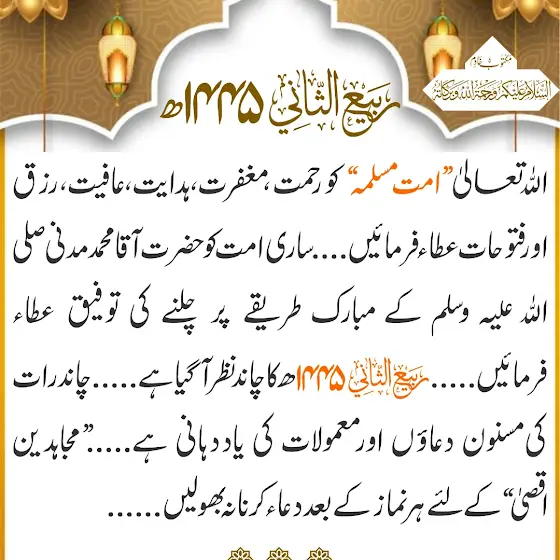 مکتوب خادم
السلام علیکم ورحمۃ اللہ وبرکاتہ
ربیع الثانی ۱۴۴۵ھ
اللہ تعالیٰ ”امت مسلمہ“ کو رحمت، مغفرت، ہدایت، عافیت، رزق
اور فتوحات عطاء فرمائیں....ساری امت کو حضرت آقا محمد مدنی صلی
اللہ علیہ وسلم کے مبارک طریقے پر چلنے کی توفیق عطاء
فرمائیں.....ربیع الثانی ۱۴۴۵ھ کا چاند نظر آگیا ہے.....چاند رات
کی مسنون دعاؤں اور معمولات کی یاد دہانی ہے.....”مجاہدین
اقصیٰ“ کے لئے ہر نماز کے بعد دعاء کرنا نہ بھولیں......